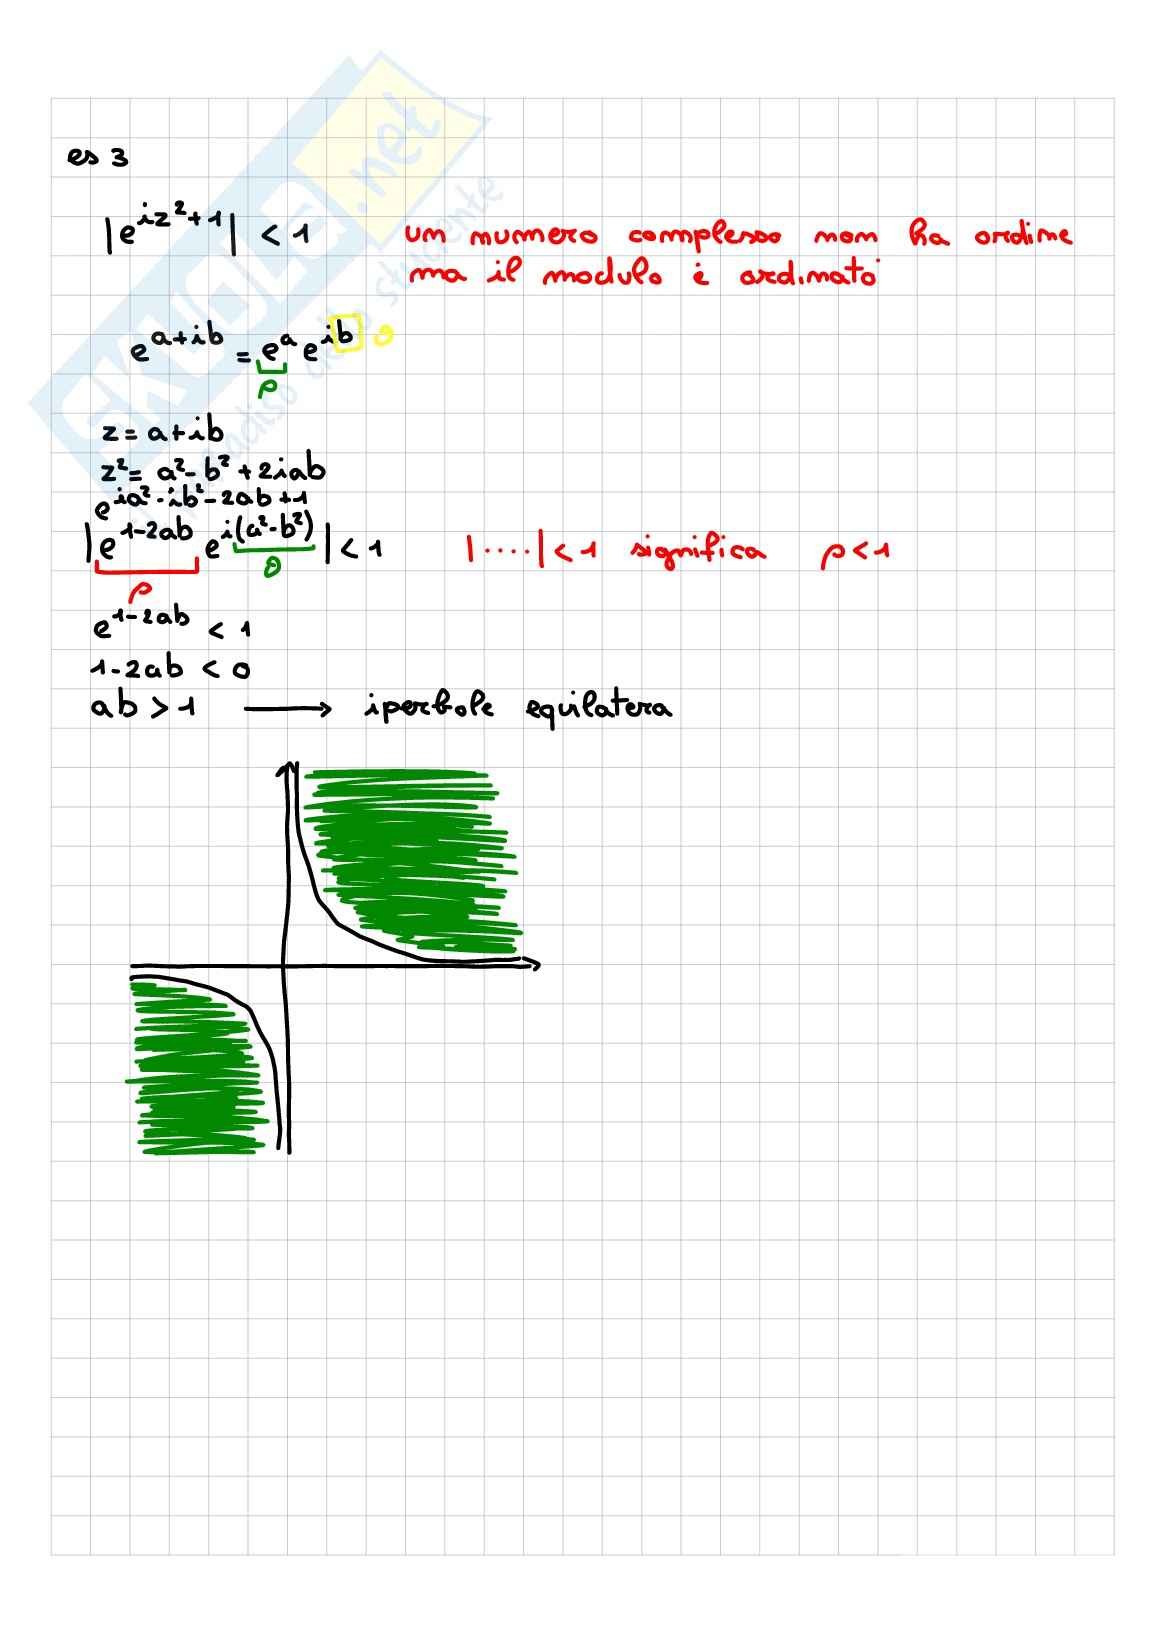 SKUOLA.net
es 3
|e^{iz²+1}| < 1 un numero complesso non ha ordine
ma il modulo è ordinato
e^{a+ib} = e^a e^{ib} θ
ρ
z = a+ib
z² = a²-b²+2iab
e^{ia²-ib²-2ab+1}
|e^{1-2ab} e^{i(a²-b²)}| < 1 |....| < 1 significa ρ < 1
ρ θ
e^{1-2ab} < 1
1-2ab < 0
ab > 1 → iperbole equilatera